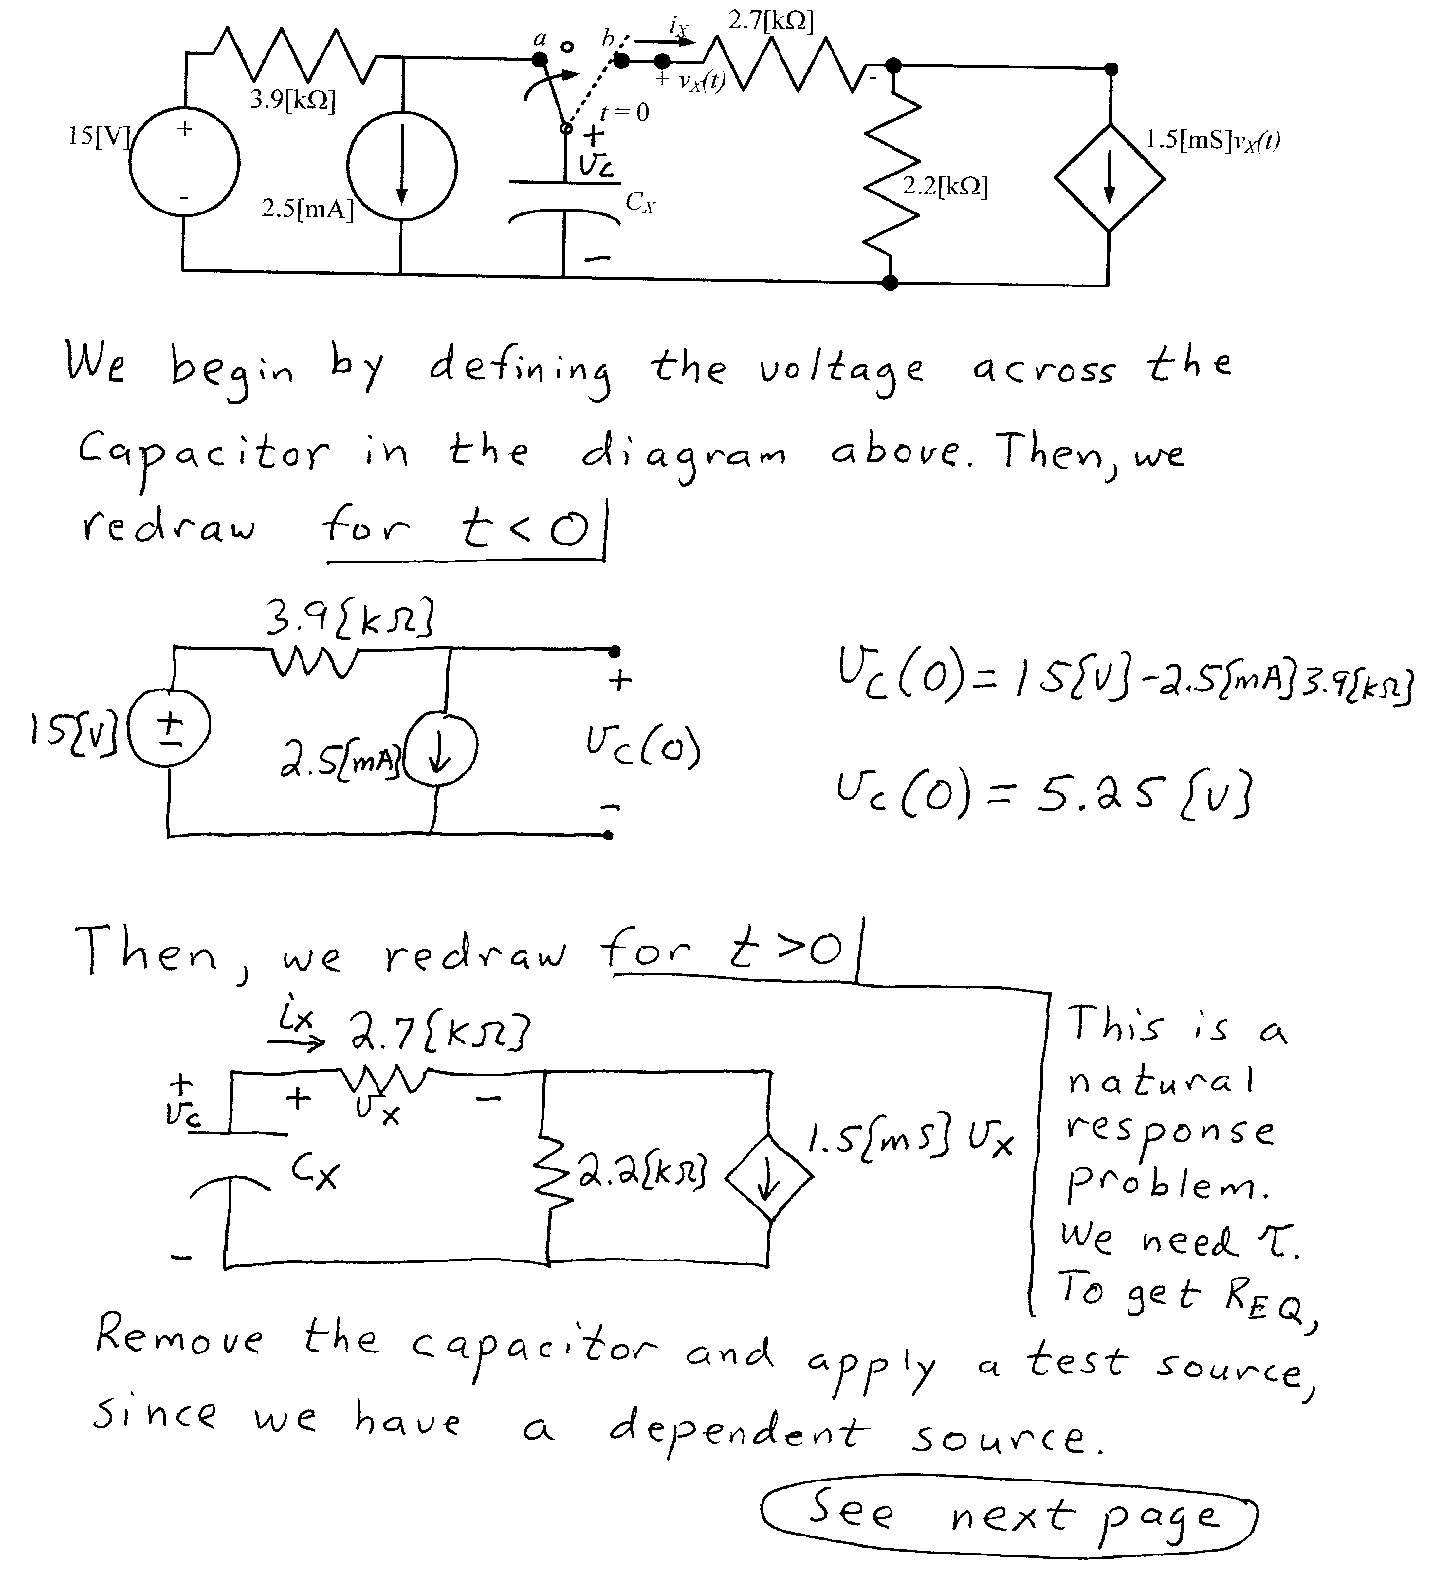 a b iX 2.7[kΩ]
+ vX(t) -
3.9[kΩ]
t = 0
15[V] + -
2.5[mA]
+ vc -
CX
2.2[kΩ]
1.5[mS]vX(t)
We begin by defining the voltage across the
Capacitor in the diagram above. Then, we
redraw for t<0
3.9[kΩ]
15[V] + -
2.5[mA]
+
vc(0)
-
vc(0) = 15[V] - 2.5[mA] 3.9[kΩ]
vc(0) = 5.25[V]
Then, we redraw for t>0
ix 2.7[kΩ]
+ vc + vx -
Cx
-
2.2[kΩ]
1.5[mS] vx
This is a
natural
response
problem.
We need τ.
To get REQ,
Remove the capacitor and apply a test source,
since we have a dependent source.
See next page